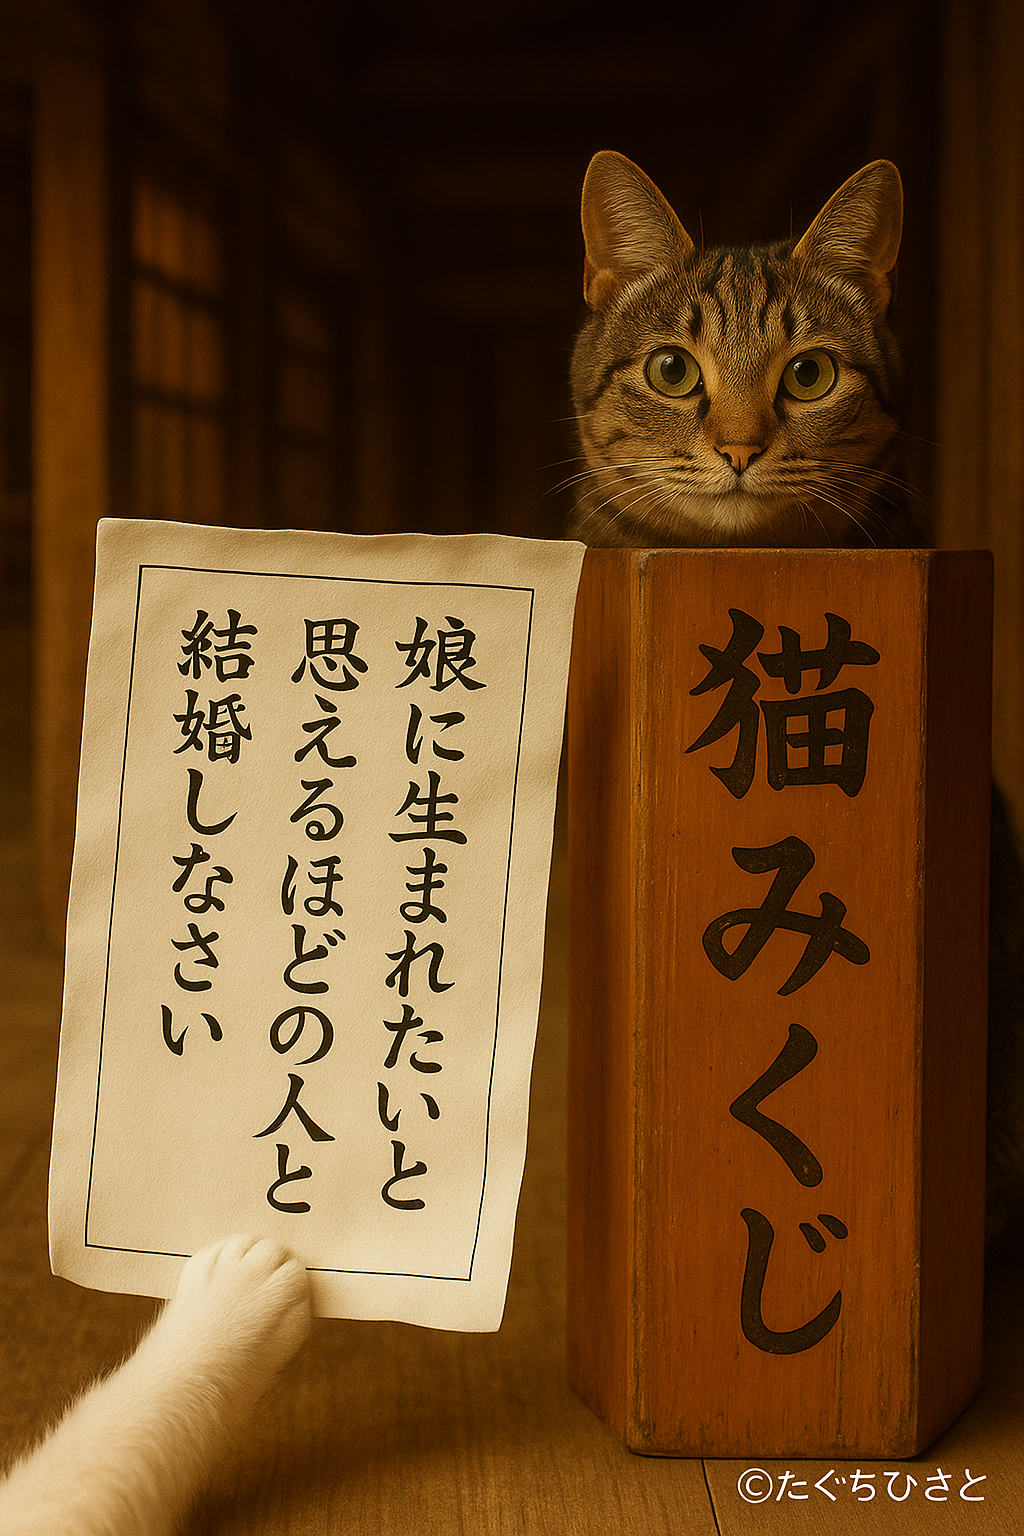 娘に生まれたいと
思えるほどの人と
結婚しなさい
猫みくじ
©たぐちひさと